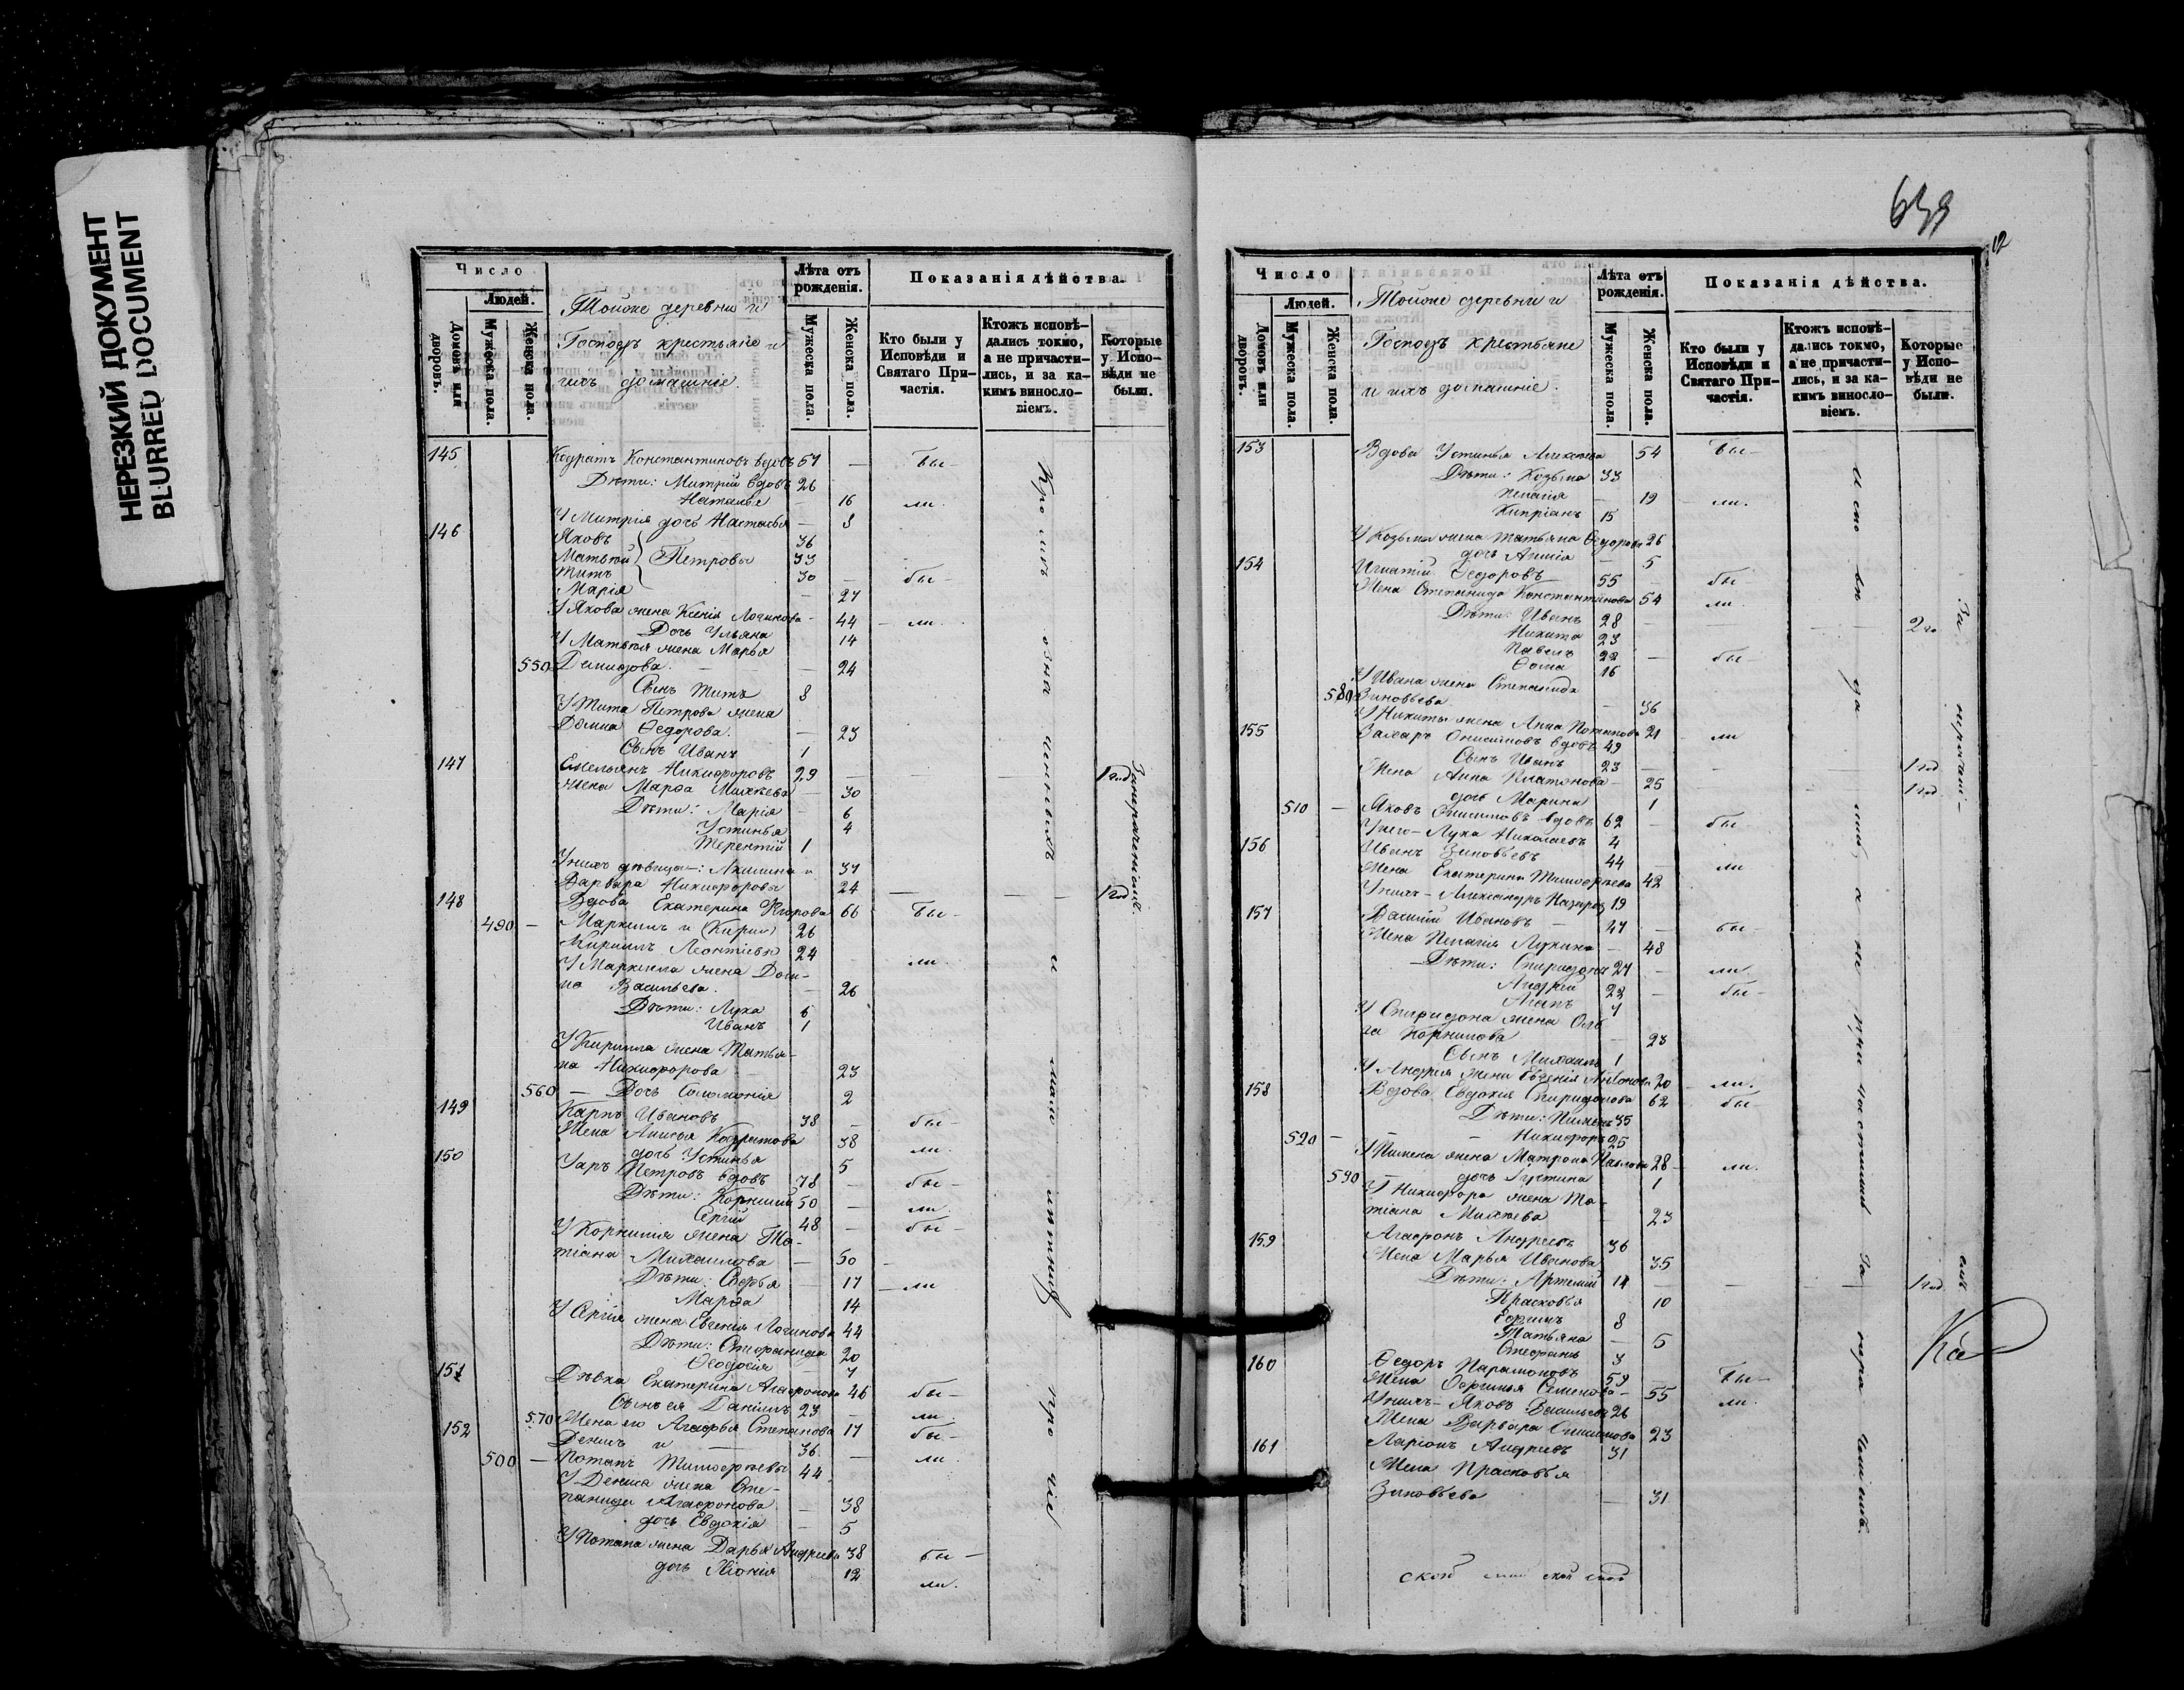 НЕРЕЗКИЙ ДОКУМЕНТ
BLURRED DOCUMENT
Число
Людей.
Домовъ или дворовъ.
Мужеска пола.
Женска пола.
Тойже деревни и
Господъ крестьяне и
ихъ домашніе.
Лѣта отъ рожденія.
Мужеска пола.
Женска пола.
Показанія дѣйства.
Кто были у Исповѣди и Святаго Причастія.
Ктожъ исповѣдались токмо, а не причастились, и за какимъ винословіемъ.
Которые у Исповѣди не были.
145 Кодратъ Константиновъ вдовъ 57 — бы-
Дѣти: Митрій вдовъ 26
Наталья — 16 ли.
У Митрія дочь Настасья — 8
146 Яковъ 36
Матвѣй } Петровы 33
Титъ 30 — бы-
Марія — 27
У Якова жена Ксенія Логинова — 44 — ли.
Дочь Ульяна 14
У Матвѣя жена Марья
550 Демидова. — — 24
Сынъ Титъ 8
У Тита Петрова жена
Домна Ѳедорова. — 23
Сынъ Иванъ 1
147 Емельянъ Никифоровъ 29 — — — 1 год
жена Марѳа Михѣева — 30
Дѣти: Марія — 6
Устинья 4
Терентій 1
У нихъ дѣвицы: Акилина и 37
Варвара Никифоровы 24 — — 1 год
148 Вдова Екатерина Егорова 66 бы-
490 — Маркеллъ и (Кирил) 26
Кириллъ Леонтіевы 24
У Маркелла жена Дом- ли.
на Васильева. — 26
Дѣти: Лука 6
Иванъ 1
У Кирилла жена Татья-
на Никифорова — 23
560 — Дочь Соломонія 2
149 Карпъ Ивановъ 38 — бы-
Жена Анисья Кодратова 38 ли.
дочь Устинья 5
150 Уаръ Петровъ вдовъ 78 — бы-
Дѣти: Корнилій 50 — ли
Сергій 48 — бы-
У Корнилія жена Та-
тіана Михайлова — 50
Дѣти: Софья — 17 — ли
Марѳа 14
У Сергія жена Евгенія Логинова 44
Дѣти: Стефанида 20
Ѳеодосія 7
151 Дѣвка Екатерина Агафонова 46 бы-
Сынъ ея Даніилъ 23 — ли.
570 Жена его Агафья Степанова 17 бы-
152 Денисъ и — 36 —
500 — Потапъ Тимофѣевы 44 ли.
У Дениса жена Сте-
панида Агафонова — 38
дочь Евдокія — 5
У Потапа жена Дарья Андреева 38 бы-
дочь Хіонія 12 ли.
639
12
Число
Людей.
Домовъ или дворовъ.
Мужеска пола.
Женска пола.
Тойже деревни и
Господъ крестьяне
и ихъ домашніе.
Лѣта отъ рожденія.
Мужеска пола.
Женска пола.
Показанія дѣйства.
Кто были у Исповѣди и Святаго Причастія.
Ктожъ исповѣдались токмо, а не причастились, и за какимъ винословіемъ.
Которые у Исповѣди не были.
153 Вдова Устинья Алексѣева 54 бы-
Дѣти: Козьма 33
Пелагія — 19 ли.
Кипріанъ 15
У Козьмы жена Татьяна Ѳедорова 26
дочь Анисія — 5
154 Игнатій Ѳедоровъ 55 — бы-
Жена Степанида Константинова 54 ли.
Дѣти: Иванъ 28 — — — 2 го
Никита 23
Павелъ 22 — бы-
Ѳома 16
У Ивана жена Степанида
580 Зиновьева — 36
У Никиты жена Анна Потапова 21 — ли
155 Захаръ Онисимовъ вдовъ 49
Сынъ Иванъ 23 — — 1 год
Жена Анна Платонова — 25 — 1 год
дочь Марина 1
510 — Яковъ Онисимовъ вдовъ 62 — бы-
У него — Лука Николаевъ 4
156 Иванъ Зиновьевъ 44 — ли
Жена Екатерина Тимофѣева 42
У нихъ — Александръ Назаров 19
157 Василій Ивановъ — 47 — бы-
Жена Пелагія Лукина — 48
Дѣти: Спиридонъ 27 — ли
Андрей 22 — бы-
Агапъ 7
У Спиридона жена Оль-
га Корнилова — 23
Сынъ Михаилъ 1
У Андрея жена Евгенія Антонова 20 ли.
158 Вдова Евдокія Спиридонова 62 бы-
Дѣти: Пименъ 35
520 — — — Никифоръ 25
У Пимена жена Матрона Павлова 28 — ли.
590 — дочь Іустина 1
У Никифора жена Та-
тіана Михѣева — 23
159 Агафонъ Андреевъ 36
Жена Марья Иванова 35
Дѣти: Артемій 14 — — — 1 год.
Прасковья 10
Ефимъ 8
Татьяна — 5
Стефанъ 3
160 Ѳедоръ Парамоновъ 59 — бы-
Жена Ефимья Семенова — 55
У нихъ — Яковъ Васильевъ 26 ли.
Жена Варвара Онисимова 23
161 Ларіонъ Андреевъ 31
Жена Прасковья
Зиновьева — 31